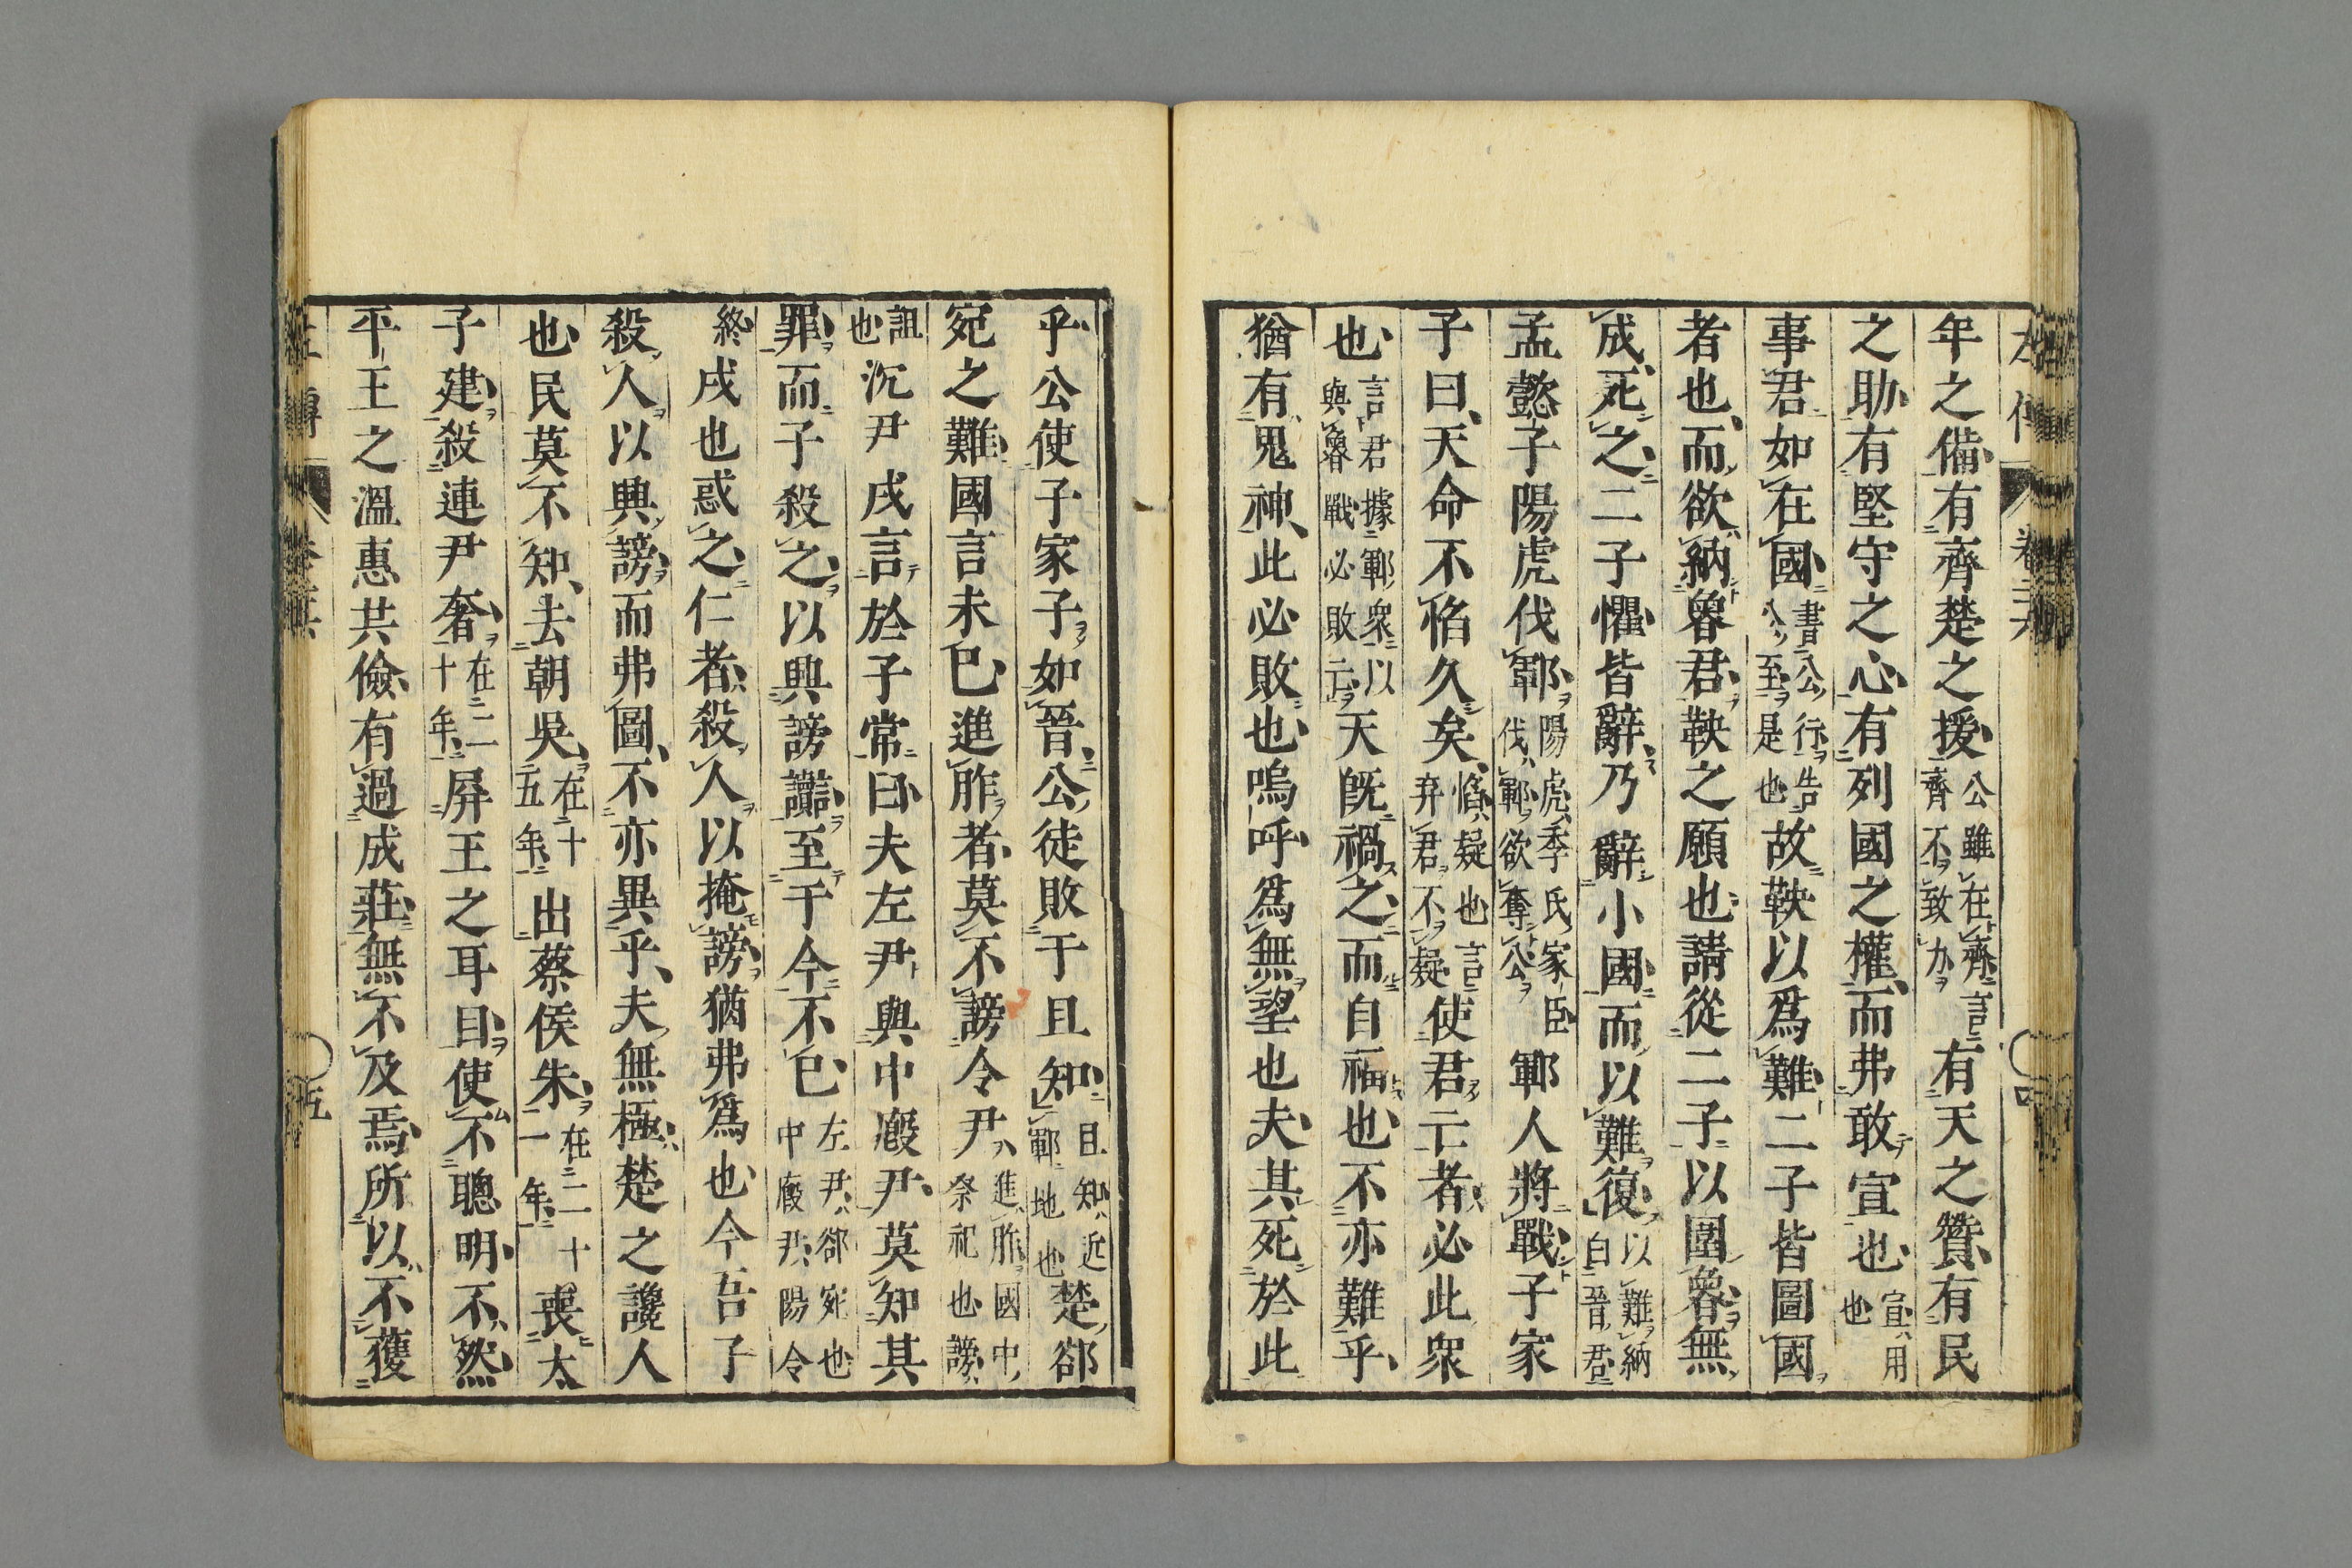 年之備有齊楚之援公雖在齊言齊不致力有天之贊有民
之助有堅守之心有列國之權而弗敢宣也宣用也
事君如在國書公行告公至是也故鞅以爲難二子皆圖國
者也而欲納魯君鞅之願也請從二子以圍魯無
成死之二子懼皆辭乃辭小國而以難復以難納白晉君
孟懿子陽虎伐鄆陽虎季氏家臣伐鄆欲奪公鄆人將戰子家
子曰天命不慆久矣慆疑也言弃君不疑使君亡者必此衆
也言君據鄆衆以與魯戰必敗亡天既禍之而自福也不亦難乎
猶有鬼神此必敗也嗚呼爲無望也夫其死於此
乎公使子家子如晉公徒敗于且知且知近鄆地也楚郤
宛之難國言未已進胙者莫不謗令尹進胙國中祭祀也謗
詛也沈尹戌言於子常曰夫左尹與中廄尹莫知其
罪而子殺之以興謗讟至于今不已左尹郤宛也中廄尹陽令
終戌也惑之仁者殺人以掩謗猶弗爲也今吾子
殺人以興謗而弗圖不亦異乎夫無極楚之讒人
也民莫不知去朝吳在十五年出蔡侯朱在二十一年喪太
子建殺連尹奢在二十年屏王之耳目使不聰明不然
平王之溫惠共儉有過成莊無不及焉所以不獲
五